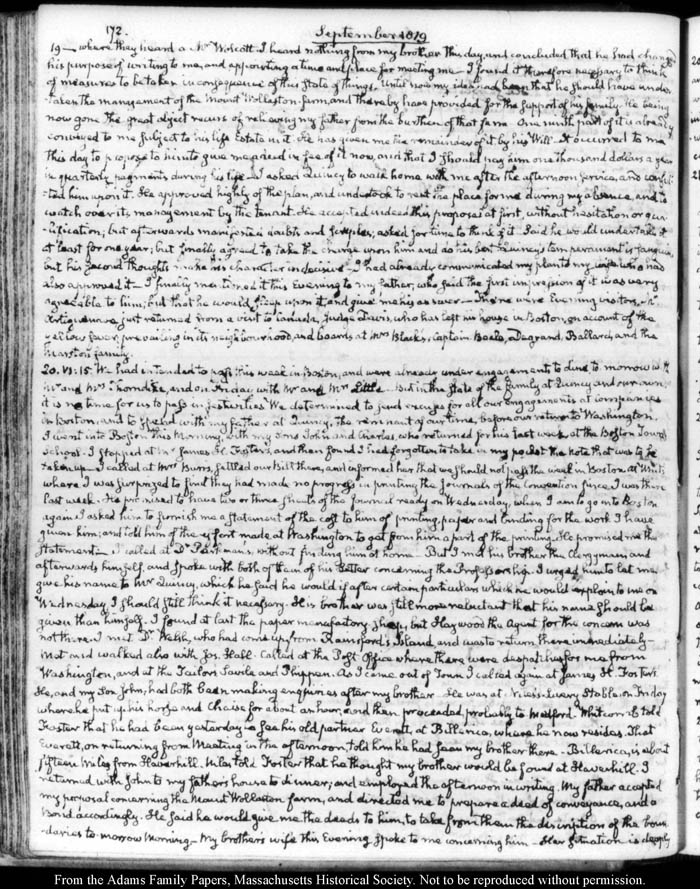 172.
September 1819
19 — where they heard a Mr Wolcott. I heard nothing from my brother this day, and concluded that he had changed
his purpose of writing to me, and appointing a time and place for meeting me — I found it therefore necessary to think
of measures to be taken in consequence of this State of things. Until now my idea had been that he should have under-
taken the management of the Mount Wollaston farm, and thereby have provided for the support of his family. He being
now gone the great object recurs of relieving my father from the burthen of that farm. One ninth part of it is already
conveyed to me subject to his life Estate in it. He has given me the remainder of it by his Will. It occurred to me
this day to propose to him to give me a deed in fee of it now, and that I should pay him one thousand dollars a year
in quarterly payments during his life. I asked Quincy to walk home with me after the afternoon service, and consul-
ted him upon it. He approved highly of the plan, and undertook to rent the place for me during my absence, and to
watch over its management by the tenant. He accepted indeed this proposal at first, without hesitation or qua-
lification; but afterwards manifested doubts and scruples; asked for time to think of it. Said he would undertake it
at least for one year; but finally agreed to take the charge upon him and do his best. Quincy's temperament is sanguine,
but his second thoughts make his character indecisive. I had already communicated my plan to my wife who had
also approved it — I finally mentioned it this Evening to my father, who said the first impression of it was very
agreeable to him; but that he would sleep upon it, and give me his answer — There were Evening visitors, Mr
just returned from a visit to Canada, Judge Davis, who has left his house in Boston, on account of the
yellow fever prevailing in its neighbourhood, and boards at Mrs Black's, Captain Beale, Degrand, Ballard, and the
Marston family.
20. VI:15. We had intended to pass this week in Boston, and were already under engagements to dine to-morrow with
Mr and Mrs Thorndike, and on Friday with Mr and Mrs Little — But in the State of the family at Quincy and our own,
it is no time for us to pass in festivities. We determined to send excuses for all our engagements at companies
in Boston, and to spend with my father at Quincy, the remnant of our time, before our return to Washington.
I went into Boston this Morning, with my Sons John and Charles, who returned for his last week at the Boston Town
School. I stopped at Mr James H. Foster's, and then found I had forgotten to take in my pocket the note that was to be
taken up. I called at Mrs Burr's, settled our bill there, and informed her that we should not pass the week in Boston. At
where I was surprized to find they had made no progress in printing the Journals of the Convention since I was there
last week. He promised to have two or three sheets of the Journal ready on Wednesday, when I am to go into Boston
again. I asked him to furnish me a statement of the cost to him of printing, paper and binding for the work I have
given him; and told him of the effort made at Washington to get from him a part of the printing. He promised me the
Statement — I called at Dr Parkman's, without finding him at home. But I met his brother the Clergyman, and
afterwards himself, and spoke with both of them of his Letter concerning the Professorship. I urged him to let me
give his name to Mr Quincy, which he said he would if after certain particulars which he would explain to me on
Wednesday, I should still think it necessary. His brother was still more reluctant that his name should be
given than himself. I found at last the paper manufactory shop, but Haywood the Agent for the concern was
not there. I met Dr Welsh, who had come up from Rainsford's Island, and was to return there immediately —
Met and walked also with Jos. Hall. Called at the Post Office where there were despatches for me from
Washington, and at the Tailors Sawle and Phippen. As I came out of Town I called again at James H. Foster's.
He, and my Son John, had both been making enquiries after my brother. He was at Livery Stable, on Friday
where he put up his horse and Chaise for about an hour, and then proceeded probably to Medford. Whitcomb told
Foster that he had been yesterday to see his old partner Everett, at Billerica, where he now resides. That
Everett, on returning from Meeting in the afternoon, told him he had seen my brother there. Billerica is about
fifteen miles from Haverhill. told Foster that he thought my brother would be found at Haverhill. I
returned with John to my father's house to dinner; and employed the afternoon in writing. My father accepted
my proposal concerning the Mount Wollaston farm, and directed me to prepare a deed of conveyance, and a
bond accordingly. He said he would give me the deeds to him, to take from them the description of the boun-
daries to-morrow Morning — My brother's wife this Evening spoke to me concerning him — Her situation is deeply
From the Adams Family Papers, Massachusetts Historical Society. Not to be reproduced without permission.